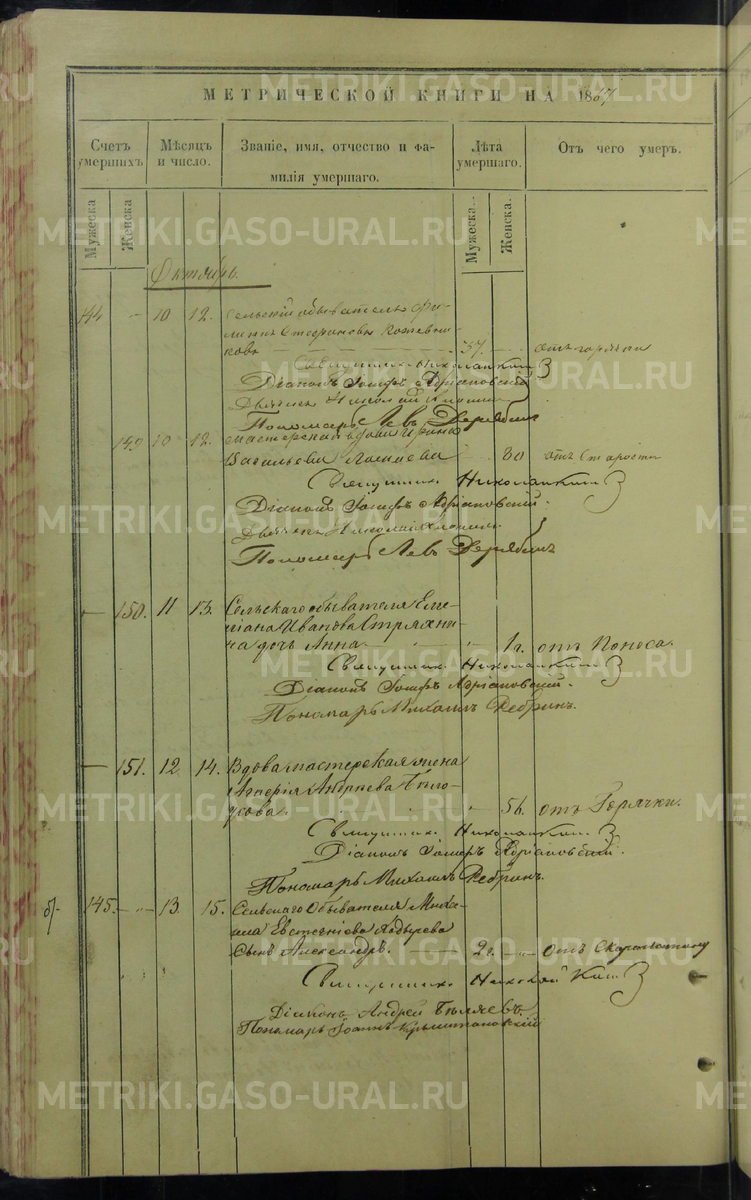 МЕТРИЧЕСКОЙ КНИГИ НА 1867
Счетъ умершихъ.
Мѣсяцъ и число.
Званіе, имя, отчество и фамилія умершаго.
Лѣта умершаго.
Отъ чего умеръ.
Мужеска
Женска.
Мужеска.
Женска.
Октябрь.
144 10 12. Сельскій обыватель Фи-
липпъ Стефановъ Кожевни-
ковъ 37. отъ горячки
Священникъ
Діаконъ Іосифъ Адріановскій
Дьячекъ Николай
Пономарь Левъ Дерябинъ
149 10 12. Мастерская вдова Ирина
Васильева 80 отъ старости
Священникъ
Діаконъ Іосифъ Адріановскій.
Дьячекъ Николай
Пономарь Левъ Дерябинъ
150. 11 13. Сельскаго обывателя Еме-
ліана Иванова Стряхни-
на дочь Анна 1 г. отъ Поноса.
Священникъ
Діаконъ Іосифъ Адріановскій.
Пономарь Михаилъ Ребринъ.
151. 12 14. Вдова мастерская жена
Андреева Бѣло-
усова. 56. отъ Горячки.
Священникъ
Діаконъ Іосифъ Адріановскій.
Пономарь Михаилъ Ребринъ.
145. 13 15. Сельскаго Обывателя Миха-
ила Евстигніева
Сынъ Александръ. 2 г. отъ
Священникъ
Діаконъ Андрей Бѣляевъ
Пономарь Іоаннъ
METRIKI.GASO-URAL.RU